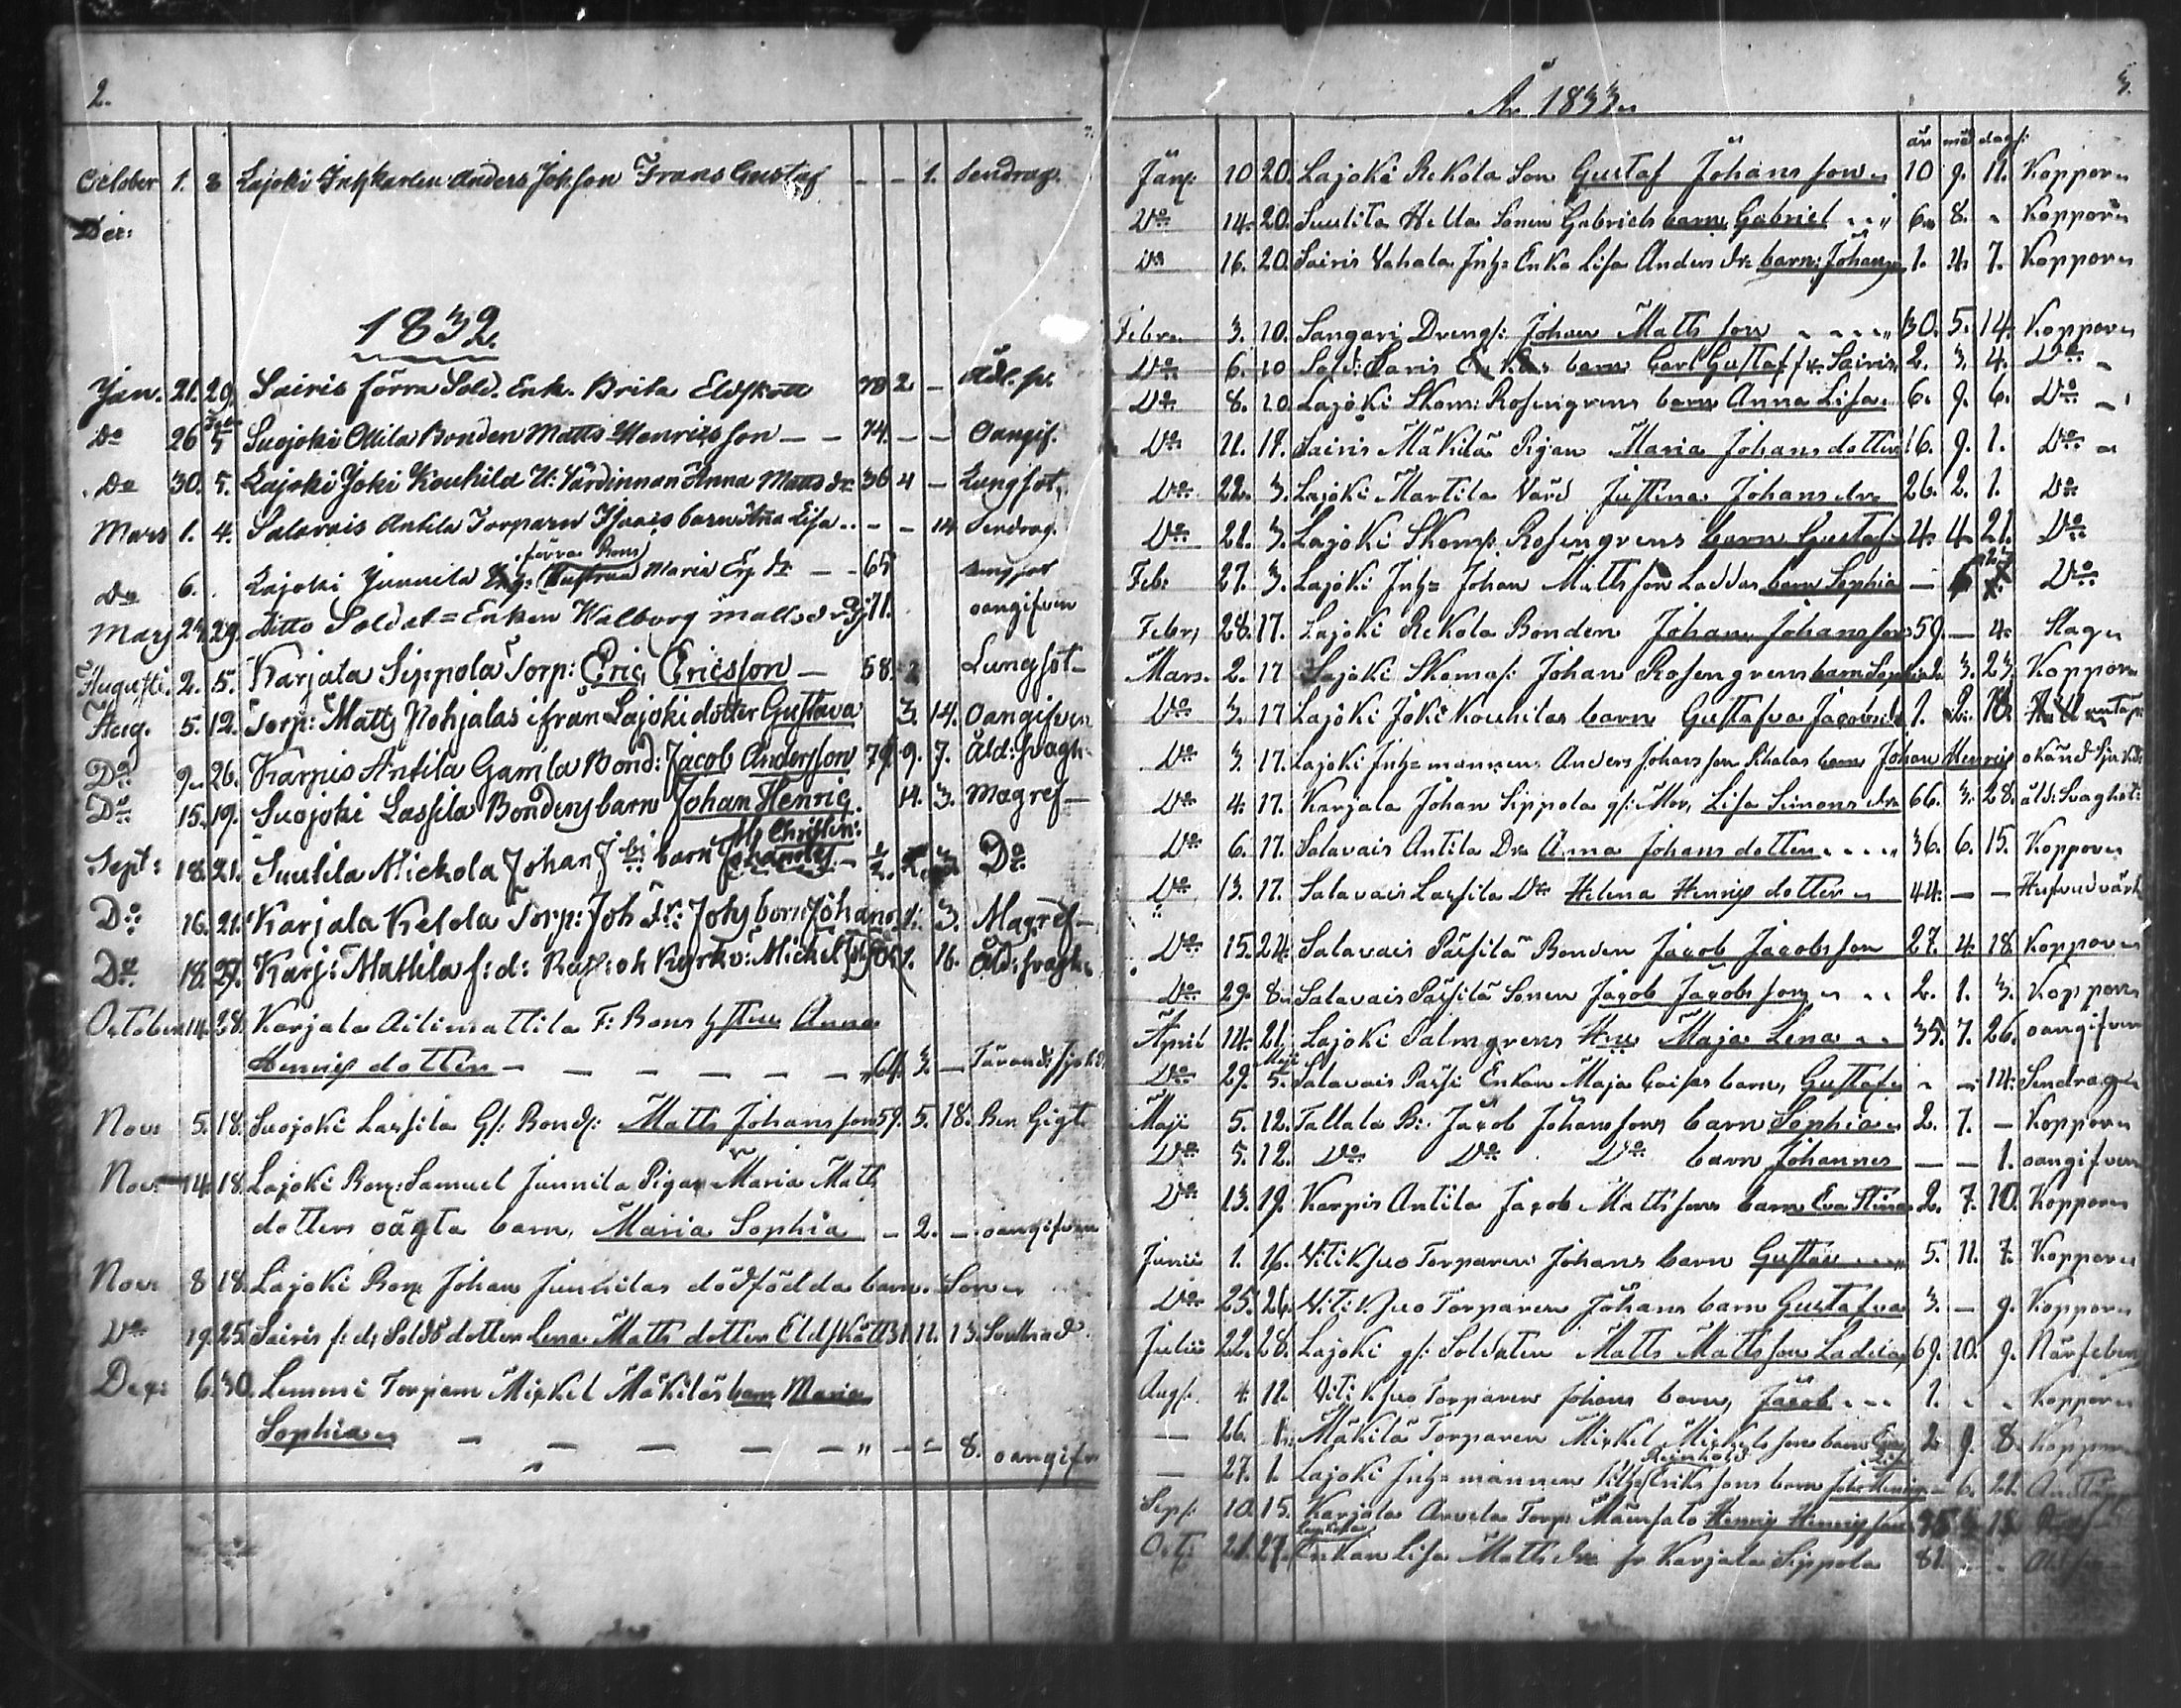 2.
October 1. 8 Lajoki Inhs karlen Anders Johsson Frans Gustaf - - 1. Sendrag.
Der:
1832.
Jan. 21. 29. Sairis förra Sold. Enk. Brita Eldskott 78 2 - Åld. sv.
Do 26 Feb 5 Suojoki Ollila Bonden Matts Henricsson - - 74. - - Oangif.
Do 30. 5. Lajoki Joki Kouhila U: Värdinnan Anna Matts dr 36 4 - Lungsot
Mars 1. 4. Salavais Antila Torparn Isaacs barn Anna Lisa .. - - 14 Sendrag.
förra Bons
Do 6. Lajoki Junnila Hustrun Maria Er. dr - - 65
Mars 24 29. ditto Soldat = Enkan Walborg Matts dr 71. oangifven
Augusti. 2. 5. Karjala Sippola Torp: Eric Ericsson - 58. 2 Lungsot -
Aug. 5. 12. Torp: Matts Pohjalas ifrån Lajoki dotter Gustava 3. 14. Oangifven
Do 9. 26. Karpis Antila Gamla Bond: Jacob Andersson 79. 9. 7. Åld: svagh.
Do 15. 19. Suojoki Lassila Bondens barn Johan Henric. 4. 3. Magref -
Maj Christin:
Sept: 18. 21. Suutila Mickola Johan J barn Johannes - Do
Do 16. 21. Karjala Kelola Torp: Joh Fr: Johs barn Johan 1. 3. Magref -
Do 18. 27. Karj: Mattila f: d: Rusth: oh Kyrkv: Mickel 1. 16. Åld: svagh:
October 14. 28. Karjala Ailimattila F: Bons Hstru Anna
Henrics dotter - - - - - - 64. 3. - Tärand: sjukd:
Nov 5. 18. Suojoki Lassila Gl: Bond: Matts Johansson 59. 5. 18. Ben Gigt
Nov: 14. 18. Lajoki Bon: Samuel Junnila Pigan Maria Matts
dotters oägta barn, Maria Sophia - 2. - oangifven
Nov 8 18. Lajoki Bon Johan Junnilas dödfödda barn. Son
Do 19. 25. Sairis f: d: Solds dotter Lena Matts dotter Eldskott 31. 11. 13. Svullnad
Dec: 6. 30. Lemmi Torparn Mickel Mäkiläs barn Maria
Sophia - - - - - - " - - 8. oangifv
År 1833
3.
år mån dag:
Jan: 10 20. Lajoki Rekola Son Gustaf Johansson 10 9. 11. Koppor
Do 14. 20. Suutila Hella Sonen Gabriels barn Gabriel 6 8. " Koppor
Do 16. 20. Sairis Vahala Inh: Enka Lisa Anders dr: barn: Johan 1. 4. 7. Koppor
Febr. 3. 10. Sangari Drengs: Johan Matts son 30. 5. 14. Koppor
Do 6. 10 Sold: Saris Enkas barn Carl Gustaf fr. Sairis 2. 3. 4. Do
Do 8. 10 Lajoki Skom: Rosengrens barn Anna Lisa 6. 9. 6. Do
Do 11. 17. Sairis Mäkilä Pigan Maria Johans dotter 16. 9. 1. Do
Do 22. 3. Lajoki Martila Värd Justina Johans dr 26. 2. 1. Do
Do 21. 3. Lajoki Skom: Rosengrens barn Gustaf 4. 4. 21. Do
Feb: 27. 3. Lajoki Inh= Johan Mattsson Laddas barn Sophia - Do
Febr. 28. 17. Lajoki Rekola Bonden Johan Johansson 59. - 4. Slag
Mars. 2. 17 Lajoki Skomak: Johan Rosengrens barn Sophia 2. 3. 23. Koppor
Do 3. 17 Lajoki Joki Kouhilas barn Gustafva Jacobsdr 1. 2. 18.
Do 3. 17. Lajoki Inh=mannen Anders Johansson Rihalas barn Johan Henric okänd Sjukd
Do 4. 17. Karjala Johan Sippola gl: Mor, Lisa Simons dr 66. 3. 28. åld: Svaghet:
Do 6. 17. Salavais Antila Dr Anna Johans dotter 36. 6. 15. Koppor
Do 13. 17. Salavais Lassila Dr Helena Henrics dotter 44. - - Hufvudvärk
Do 15. 24. Salavais Passila Bonden Jacob Jacobsson 27. 4. 18. Koppor
Do 29. 8. Salavais Passila Sonen Jacob Jacobsson 2. 1. 3. Koppor
April 14. 21. Lajoki Palmgrens Hru Maja Lena 35. 7. 26. oangifven
Do 29. Maji 5. Salavais Passi Enkan Maja Caisas barn, Gustaf - - 14. Sendrag
Maji 5. 12. Tallala B: Jacob Johanssons barn Sophia 2. 7. - Koppor
Do 5. 12. Do Do Do barn Johannes - - 1. oangifven
Do 13. 19. Karpis Antila Jacob Mattssons barn Eva Stina 2. 7. 10. Koppor
Junii 1. 16. Vitiksuo Torparen Johans barn Gustav 5. 11. 7. Koppor
Do 25. 26. Vitiksuo Torparen Johans barn Gustafva 3. - 9. Koppor
Julii 22. 28. Lajoki gl: Soldaten Matts Mattsson Ladda 69. 10. 9. Närfeber
Aug: 4. 11. Vitiksuo Torparen Johans barn, Jacob 1. " " Koppor
- 26. 1. Mäkilä Torparen Mickel Mickelssons barn Eva 2 9. 8. Koppor
Reinhold Lisa
- 27. 1. Lajoki Inh=mannen Erikssons barn Joh: Henric - 6. 21.
Sep: 10. 15. Karjala Arvela Torp: Henric Henricsson 18
Oct: 21. 27. Enkan Lisa Matts dr fr Karjala Sippola 81. " "